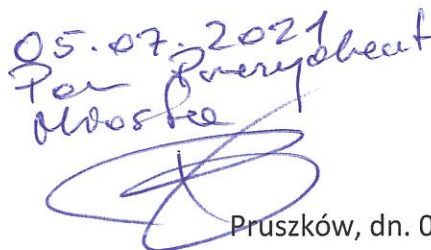 05.07.2021
Pan Prezydent
Miasta
Pruszków, dn. 0